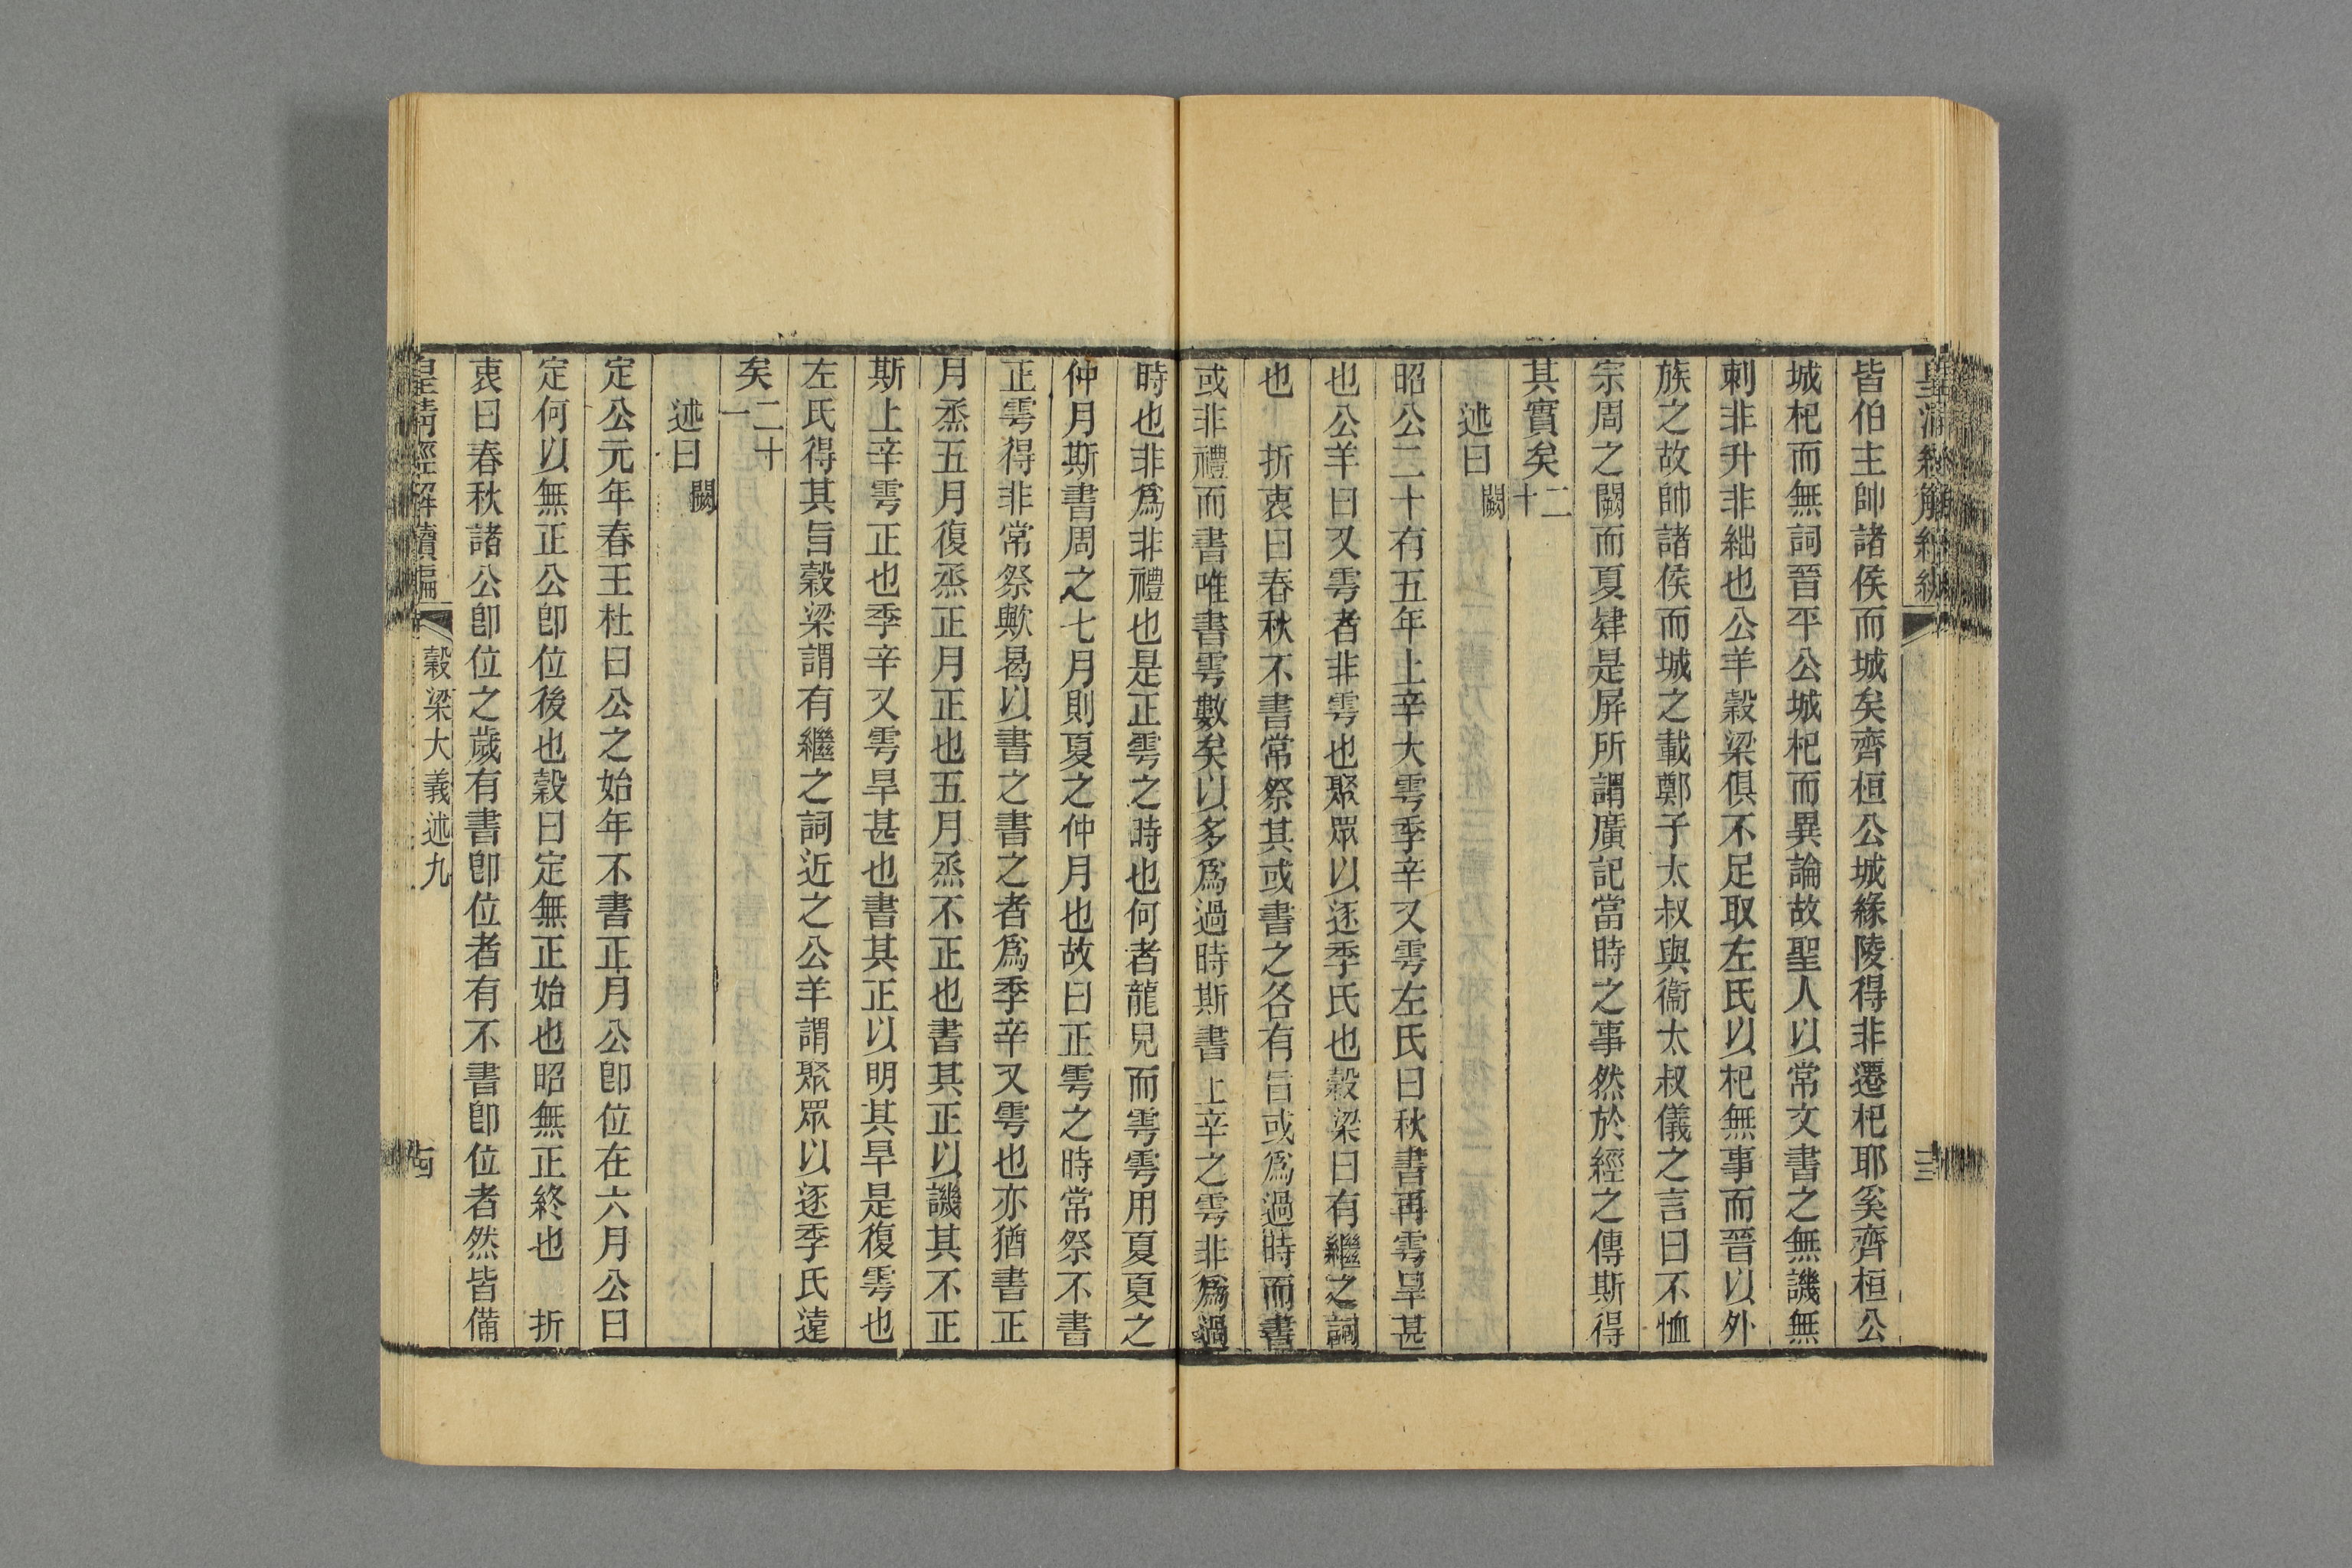 皆伯主帥諸侯而城矣齊桓公城緣陵得非遷杞耶奚齊桓公
城杞而無詞晉平公城杞而異論故聖人以常文書之無譏無
刺非升非絀也公羊穀梁俱不足取左氏以杞無事而晉以外
族之故帥諸侯而城之載鄭子太叔與衞太叔儀之言曰不恤
宗周之闕而夏肄是屏所謂廣記當時之事然於經之傳斯得
其實矣二十
述曰闕
昭公二十有五年上辛大雩季辛又雩左氏曰秋書再雩旱甚
也公羊曰又雩者非雩也聚眾以逐季氏也穀梁曰有繼之詞
也　折衷曰春秋不書常祭其或書之各有旨或爲過時而書
或非禮而書唯書雩數矣以多爲過時斯書上辛之雩非爲過
時也非爲非禮也是正雩之時也何者龍見而雩雩用夏夏之
仲月斯書周之七月則夏之仲月也故曰正雩之時常祭不書
正雩得非常祭歟曷以書之書之者爲季辛又雩也亦猶書正
月烝五月復烝正月正也五月烝不正也書其正以譏其不正
斯上辛雩正也季辛又雩旱甚也書其正以明其旱是復雩也
左氏得其旨穀梁謂有繼之詞近之公羊謂聚眾以逐季氏遠
矣二十一
述曰闕
定公元年春王杜曰公之始年不書正月公卽位在六月公曰
定何以無正公卽位後也穀曰定無正始也昭無正終也　折
衷曰春秋諸公卽位之歲有書卽位者有不書卽位者然皆備
皇淸經解續編　穀梁大義述九